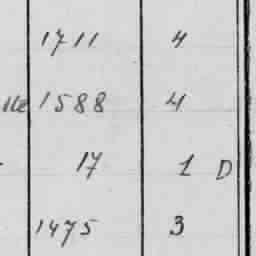 1711 4
1588 4
17 1 D
1475 3